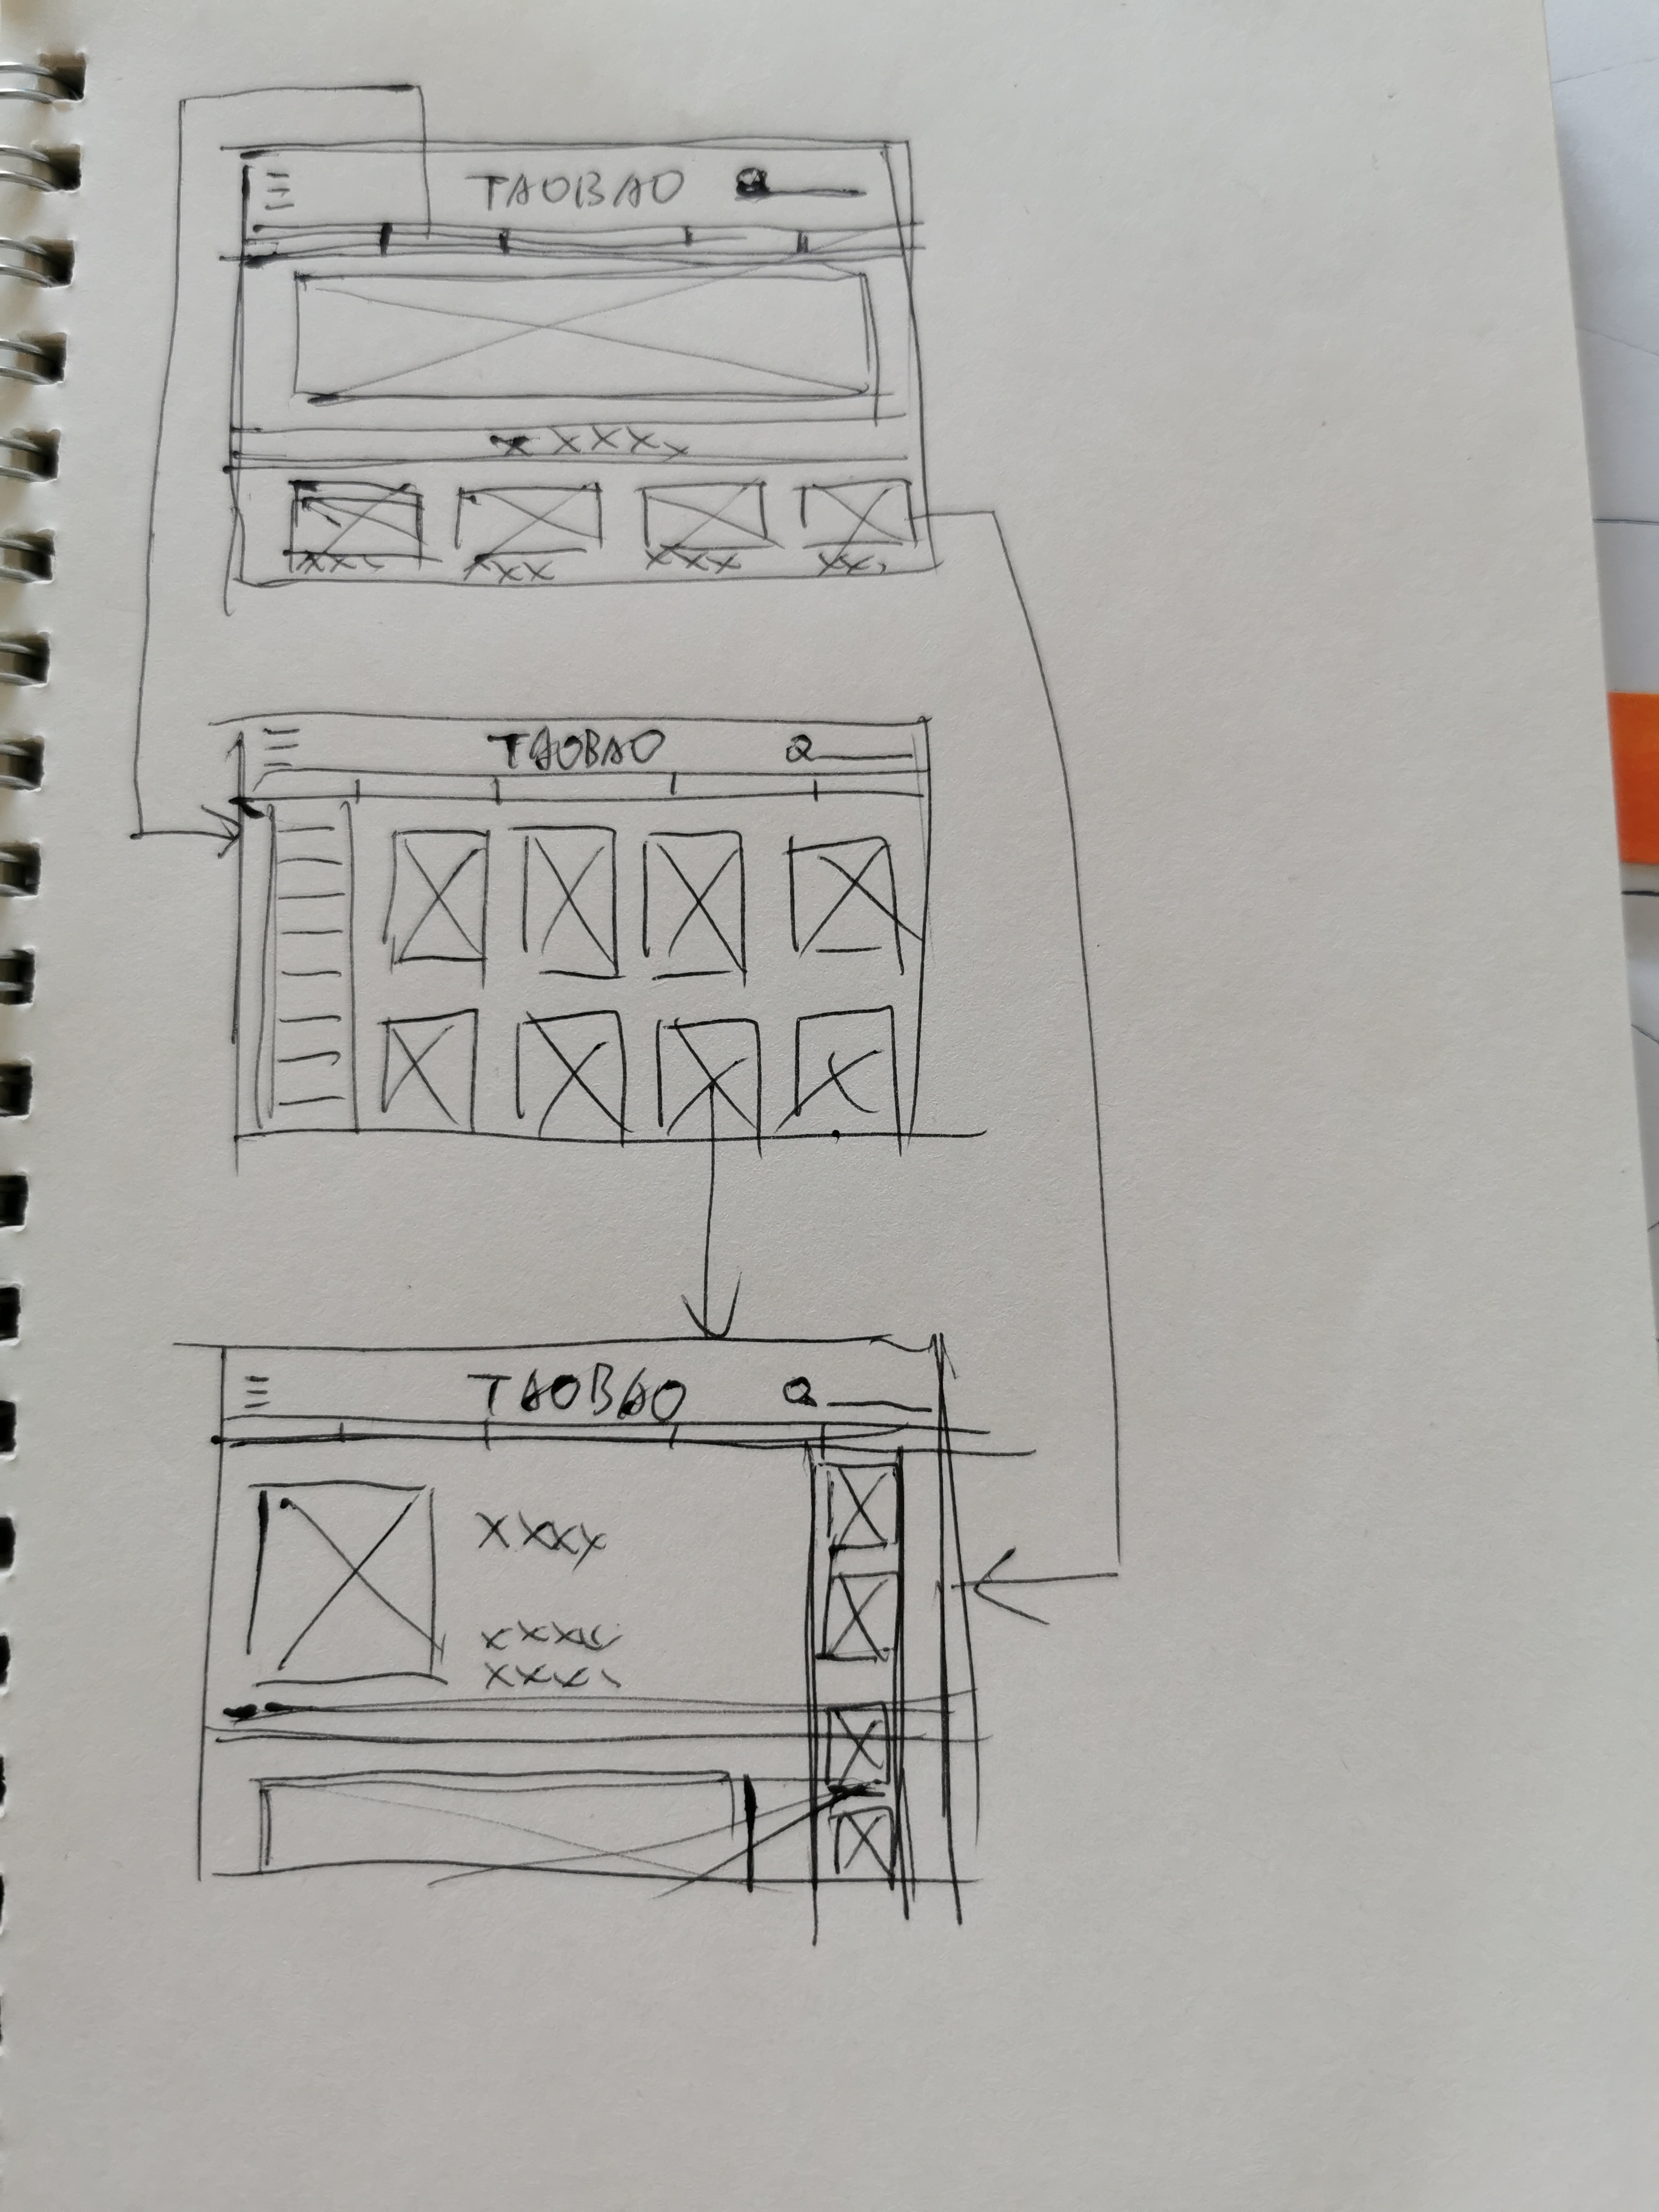 TAOBAO
XXXX
XXX XXX XXX XX
TAOBAO
TAOBAO
XXXX
XXXX
XXXX